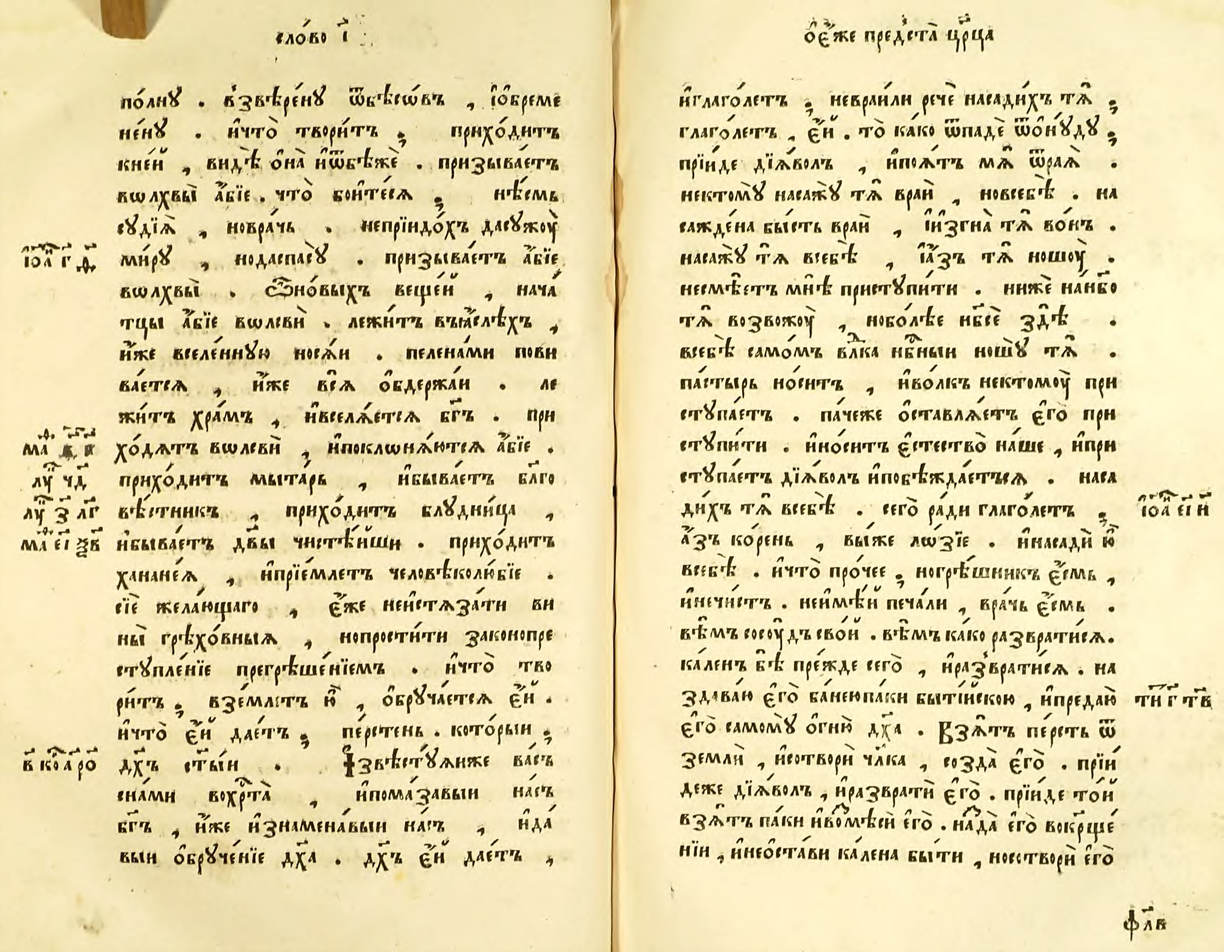 сло́во і҃
по́лнꙋ . ѝзвѣре́нꙋ ѿбѣсѡ́въ , і҆ѻбреме
не́нꙋ . и҆что̀ твори́тъ ; прихо́дитъ
кне́й , ви́дѣ ѻ҆на̀ и҆ѿбѣжѐ . призыва́етъ
вѡлхвы̀ а҆́бїе . что̀ бои́тесѧ ; нѣ́смь
сꙋдїѧ̀ , новра́чь . непрїидо́хъ дасꙋжоу̀
і҆ѡа́ г҃ і҃
ми́рꙋ , нодаспасꙋ̀ . призыва́етъ а҆́бїе
вѡлхвы̀ . Ѽно́выхъ веще́й , нача́
тцы а҆́бїе вѡлсвѝ . лежи́тъ въꙗ҆́слѣхъ ,
и҆́же вселе́ннꙋю носѧ́и . пелена́ми пови
ва́етсѧ , и҆́же всѧ̀ ѻ҆бдержа́и . ле
жи́тъ хра́мъ , и҆вселѧ́етсѧ бг҃ъ . при
хо́дѧтъ вѡлсвѝ , и҆поклѡнѧ́ютсѧ а҆́бїе .
лꙋ҃ чд҃
прихо́дитъ мыта́рь , и҆быва́етъ бл҃го
лꙋ҃ з҃ лг҃
вѣ́стникъ , прихо́дитъ блꙋдни́ца ,
ма҃ еі҃ ѯв҃
и҆быва́етъ дв҃ы чистѣ́йши . прихо́дитъ
ханане́ѧ , и҆прїе́млетъ человѣколю́бїе .
сїѐ жела́ющаго , є҆́же неи҆стѧза́ти ви
ны̀ грѣхо́вныѧ , нопрости́ти законопре
стꙋпле́нїе прегрѣше́нїемъ . и҆что̀ тво
ри́тъ ; взе́млетъ ю҆̀ , ѻ҆брꙋча́етсѧ є҆́й .
и҆что̀ є҆́й дае́тъ ; пе́рстень . кото́рыи ;
в҃ ко҃ а҃ ро҃
дх҃ъ ст҃ы́и . Ї҆звѣ́стꙋѧиже ва́съ
сна́ми вохрⷭ҇та̀ , и҆пома́завыи на́съ
бг҃ъ , и҆́же и҆знамена́выи на́съ , и҆да́
выи ѻ҆брꙋче́нїе дх҃а . дх҃ъ є҆́й дае́тъ ,
ѻ҆є҆́же предста̀ цр҃ца
и҆глаго́летъ ; невра́йли речѐ насади́хъ тѧ̀ ;
глаго́летъ , є҆́й . то̀ ка́ко ѿпадѐ ѿѻнꙋ́дꙋ ;
прїи́де дїѧ́волъ , и҆поѧ́тъ мѧ̀ ѿраѧ̀ .
нектомꙋ̀ насажꙋ̀ тѧ̀ вра́й , новсебѣ̀ . на
сажде́на бы́сть вра́й , і҆и҆згна̀ тѧ̀ во́нъ .
насажꙋ̀ тѧ̀ всебѣ̀ , і҆а҆́зъ тѧ̀ ношоу̀ .
несмѣ́етъ мнѣ̀ пристꙋпи́ти . ни́же на́нб҃о
тѧ̀ возвожоу̀ , нобо́лѣе нб҃сѐ здѣ̀ .
всебѣ̀ само́мъ вл҃ка нб҃ныи ношꙋ̀ тѧ̀ .
па́стырь но́ситъ , и҆во́лкъ нектомоу̀ при
стꙋпа́етъ . па́чеже ѻ҆ставлѧ́етъ є҆го̀ при
стꙋпи́ти . и҆но́ситъ є҆стество̀ на́ше , и҆при
стꙋпа́етъ дїѧ́волъ и҆побѣжда́етъсѧ . наса
ди́хъ тѧ̀ всебѣ̀ . сего̀ ра́ди глаго́летъ ;
і҆ѻа҃ еі҃ и҃
а҆́зъ ко́рень , вы́же лѡ́зїе . и҆насадѝ ю҆̀
всебѣ̀ . и҆что̀ про́чее ; ногрѣ́шникъ є҆́смь ,
и҆нечи́стъ . неимѣ́й печа́ли , вра́чь є҆́смь .
вѣ́мъ сосоу́дъ сво́й . вѣ́мъ ка́ко разврати́сѧ .
ка́ленъ бѣ̀ пре́жде сего̀ , и҆разврати́сѧ . на
здава́ю є҆го̀ ба́неюпаки быті́йскою , и҆предаю̀
ти҃ г҃ тв҃
є҆го̀ самомꙋ̀ огню̀ дх҃а . Взѧ́тъ пе́рсть ѿ
землѝ , и҆сотворѝ чл҃ка , созда̀ є҆го̀ . прїи́
деже дїѧ́волъ , и҆развратѝ є҆го̀ . прїи́де то́й
взѧ́тъ па́ки и҆вомѣсѝ є҆го̀ . на́да̀ є҆го̀ вокр҃ще́
нїи , и҆неѻ҆ста́ви ка́лена бы́ти , носотворѝ є҆го̀
ф҃лв